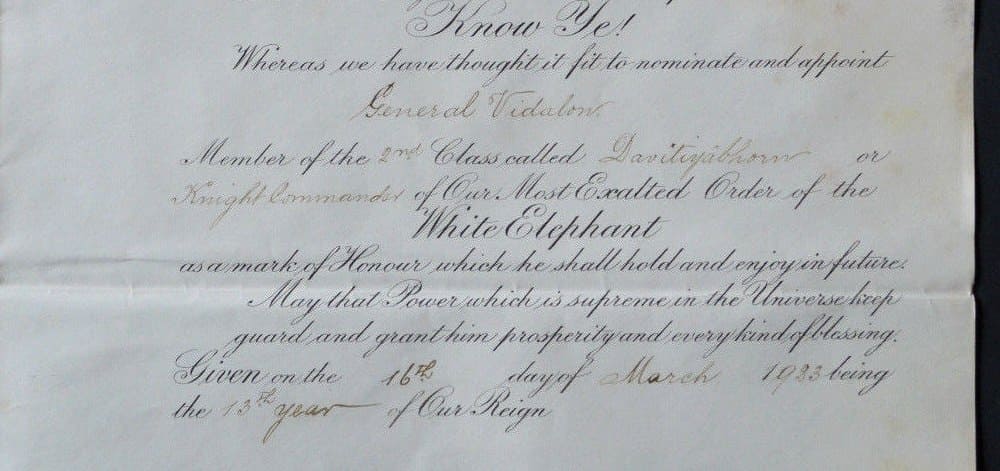 Know Ye!
Whereas we have thought it fit to nominate and appoint
General Vidalon
Member of the 2nd Class called Davitiyâbhorn or
Knight Commander of Our Most Exalted Order of the
White Elephant
as a mark of Honour which he shall hold and enjoy in future.
May that Power which is supreme in the Universe keep
guard and grant him prosperity and every kind of blessing.
Given on the 16th day of March 1923 being
the 13th year of Our Reign